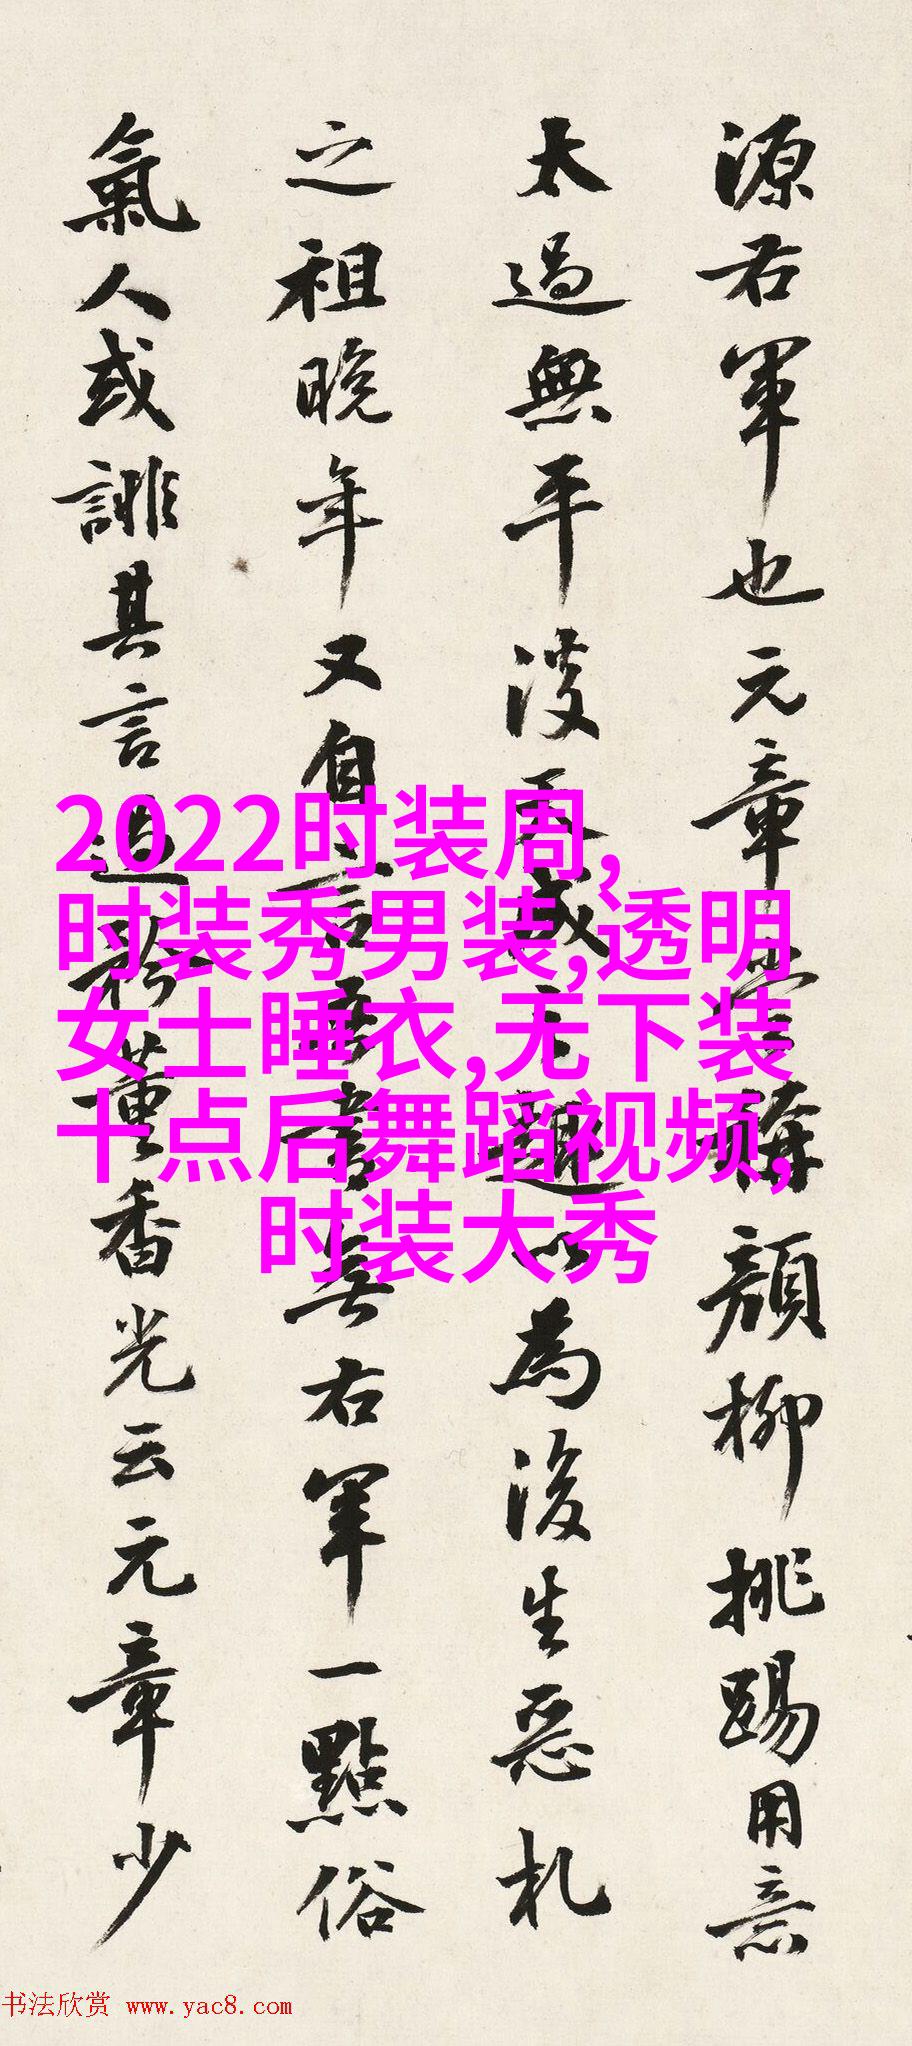 源右軍也元章嘗稱顏柳挑踢用意
太過無平淡天成之趣以為後生惡札
之祖晚年又自言吾書無右軍一點俗
氣人或誹其言過矜董香光云元章少
2022时装周,
时装秀男装,透明
女士睡衣,无下装
十点后舞蹈视频,
时装大秀
书法欣赏 www.yac8.com